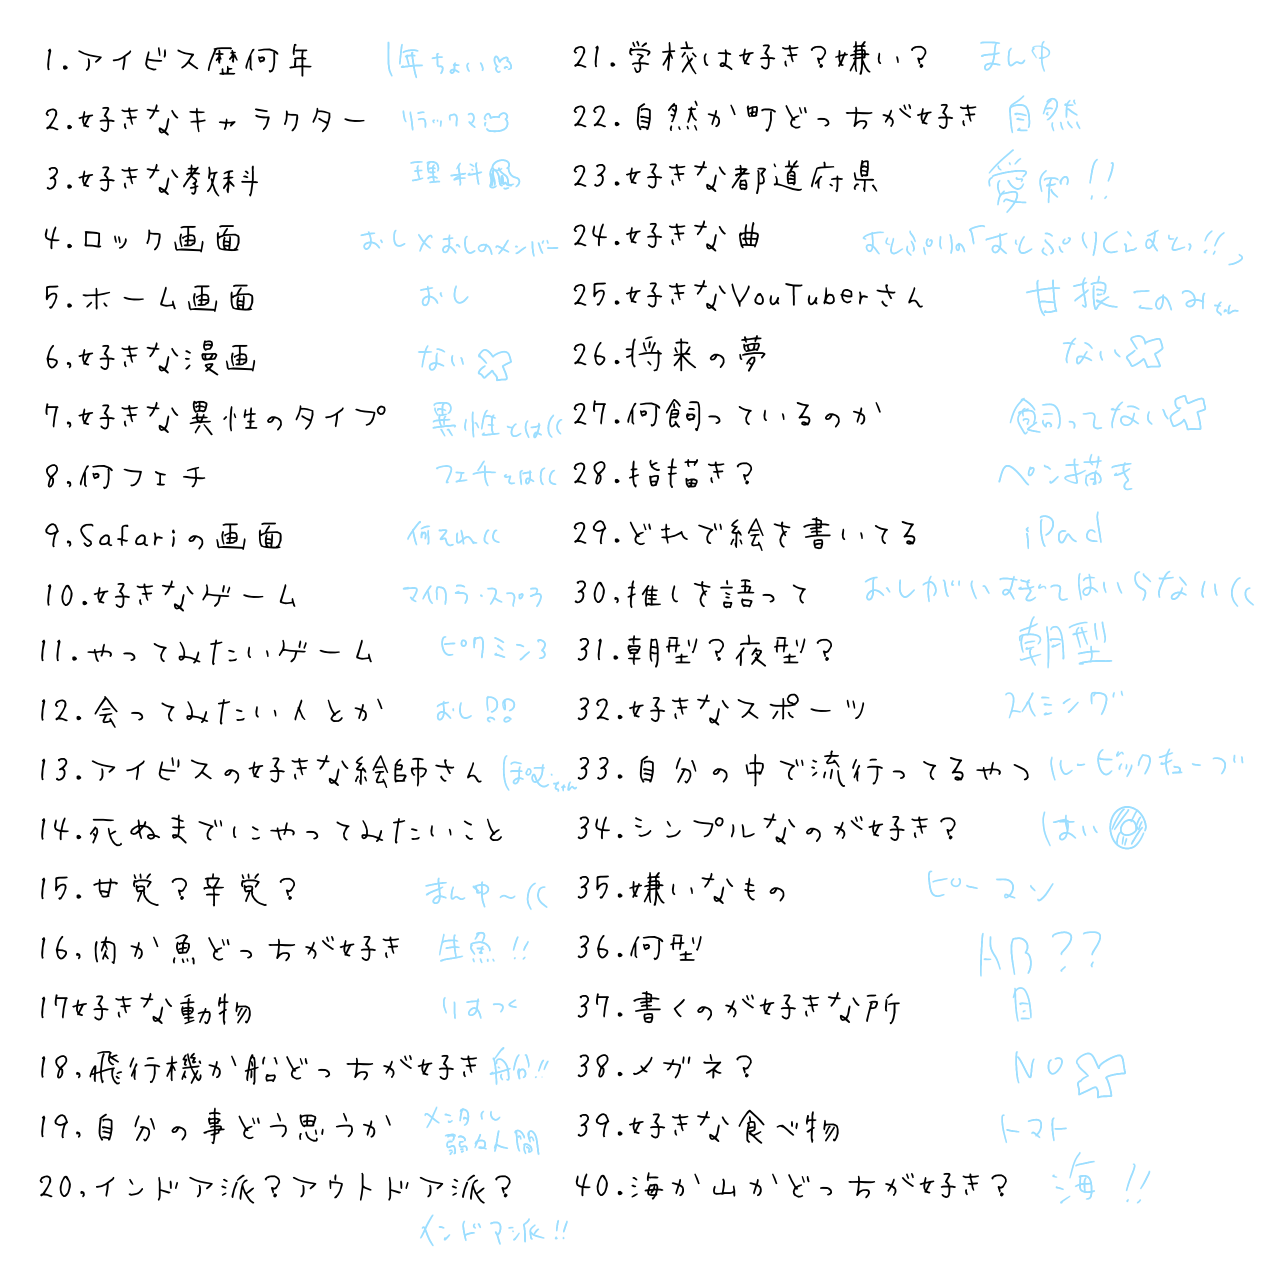 1.アイビス歴何年 1年ちょい
2.好きなキャラクター リラックマ
3.好きな教科 理科
4.ロック画面 おし×おしのメンバー
5.ホーム画面 おし
6,好きな漫画 ない
7,好きな異性のタイプ 異性とは((
8,何フェチ フェチとは((
9,Safariの画面 何それ((
10.好きなゲーム マイクラ・スプ3
11.やってみたいゲーム ピクミン3
12.会ってみたい人とか おし!!
13.アイビスの好きな絵師さん ぽむちゃん
14.死ぬまでにやってみたいこと
15.甘党?辛党? まん中~((
16,肉か魚どっちが好き 生魚!!
17好きな動物 りすっく
18,飛行機か船どっちが好き 船!!
19,自分の事どう思うか メンタル
弱々人間
20,インドア派?アウトドア派?
インドア派!!
21.学校は好き?嫌い? まん中
22.自然か町どっちが好き 自然
23.好きな都道府県 愛知!!
24.好きな曲 おとぷりの「おとぷりくらむと,!!」
25.好きなYouTuberさん 甘狼このみちゃん
26.将来の夢 ない
27.何飼っているのか 飼ってない
28.指描き? ペン描き
29.どれで絵を書いてる iPad
30,推しを語って おしがいすぎてはいらない((
31.朝型?夜型? 朝型
32.好きなスポーツ スイミング
33.自分の中で流行ってるやつ ルービックキューブ
34.シンプルなのが好き? はい
35.嫌いなもの ピーマン
36.何型 AB??
37.書くのが好きな所 目
38.メガネ? NO
39.好きな食べ物 トマト
40.海か山かどっちが好き? 海!!